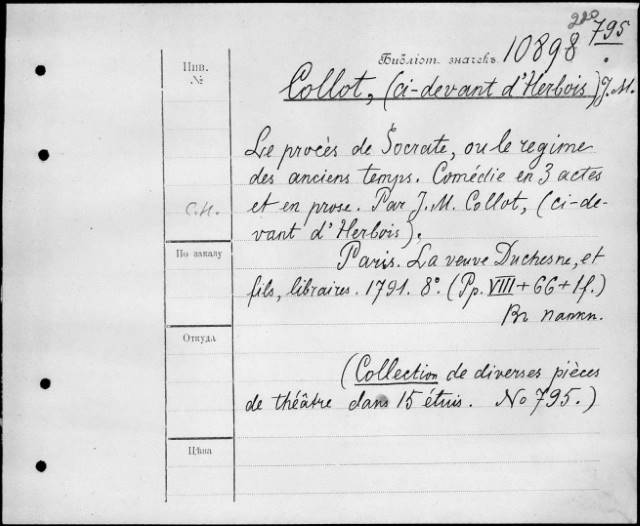 220
795
Библіот. значекъ 10898
Инв.
№
Collot, (ci-devant d'Herbois) J. M.
Le procès de Socrate, ou le regime
des anciens temps. Comédie en 3 actes
С.Н.
et en prose. Par J. M. Collot, (ci-de-
vant d'Herbois).
По заказу
Paris. La veuve Duchesne, et
fils, libraires. 1791. 8°. (Pp. VIII + 66 + 1f.)
Въ папкѣ.
Откуда
(Collection de diverses pièces
de théâtre dans 15 étuis. No 795.)
Цѣна